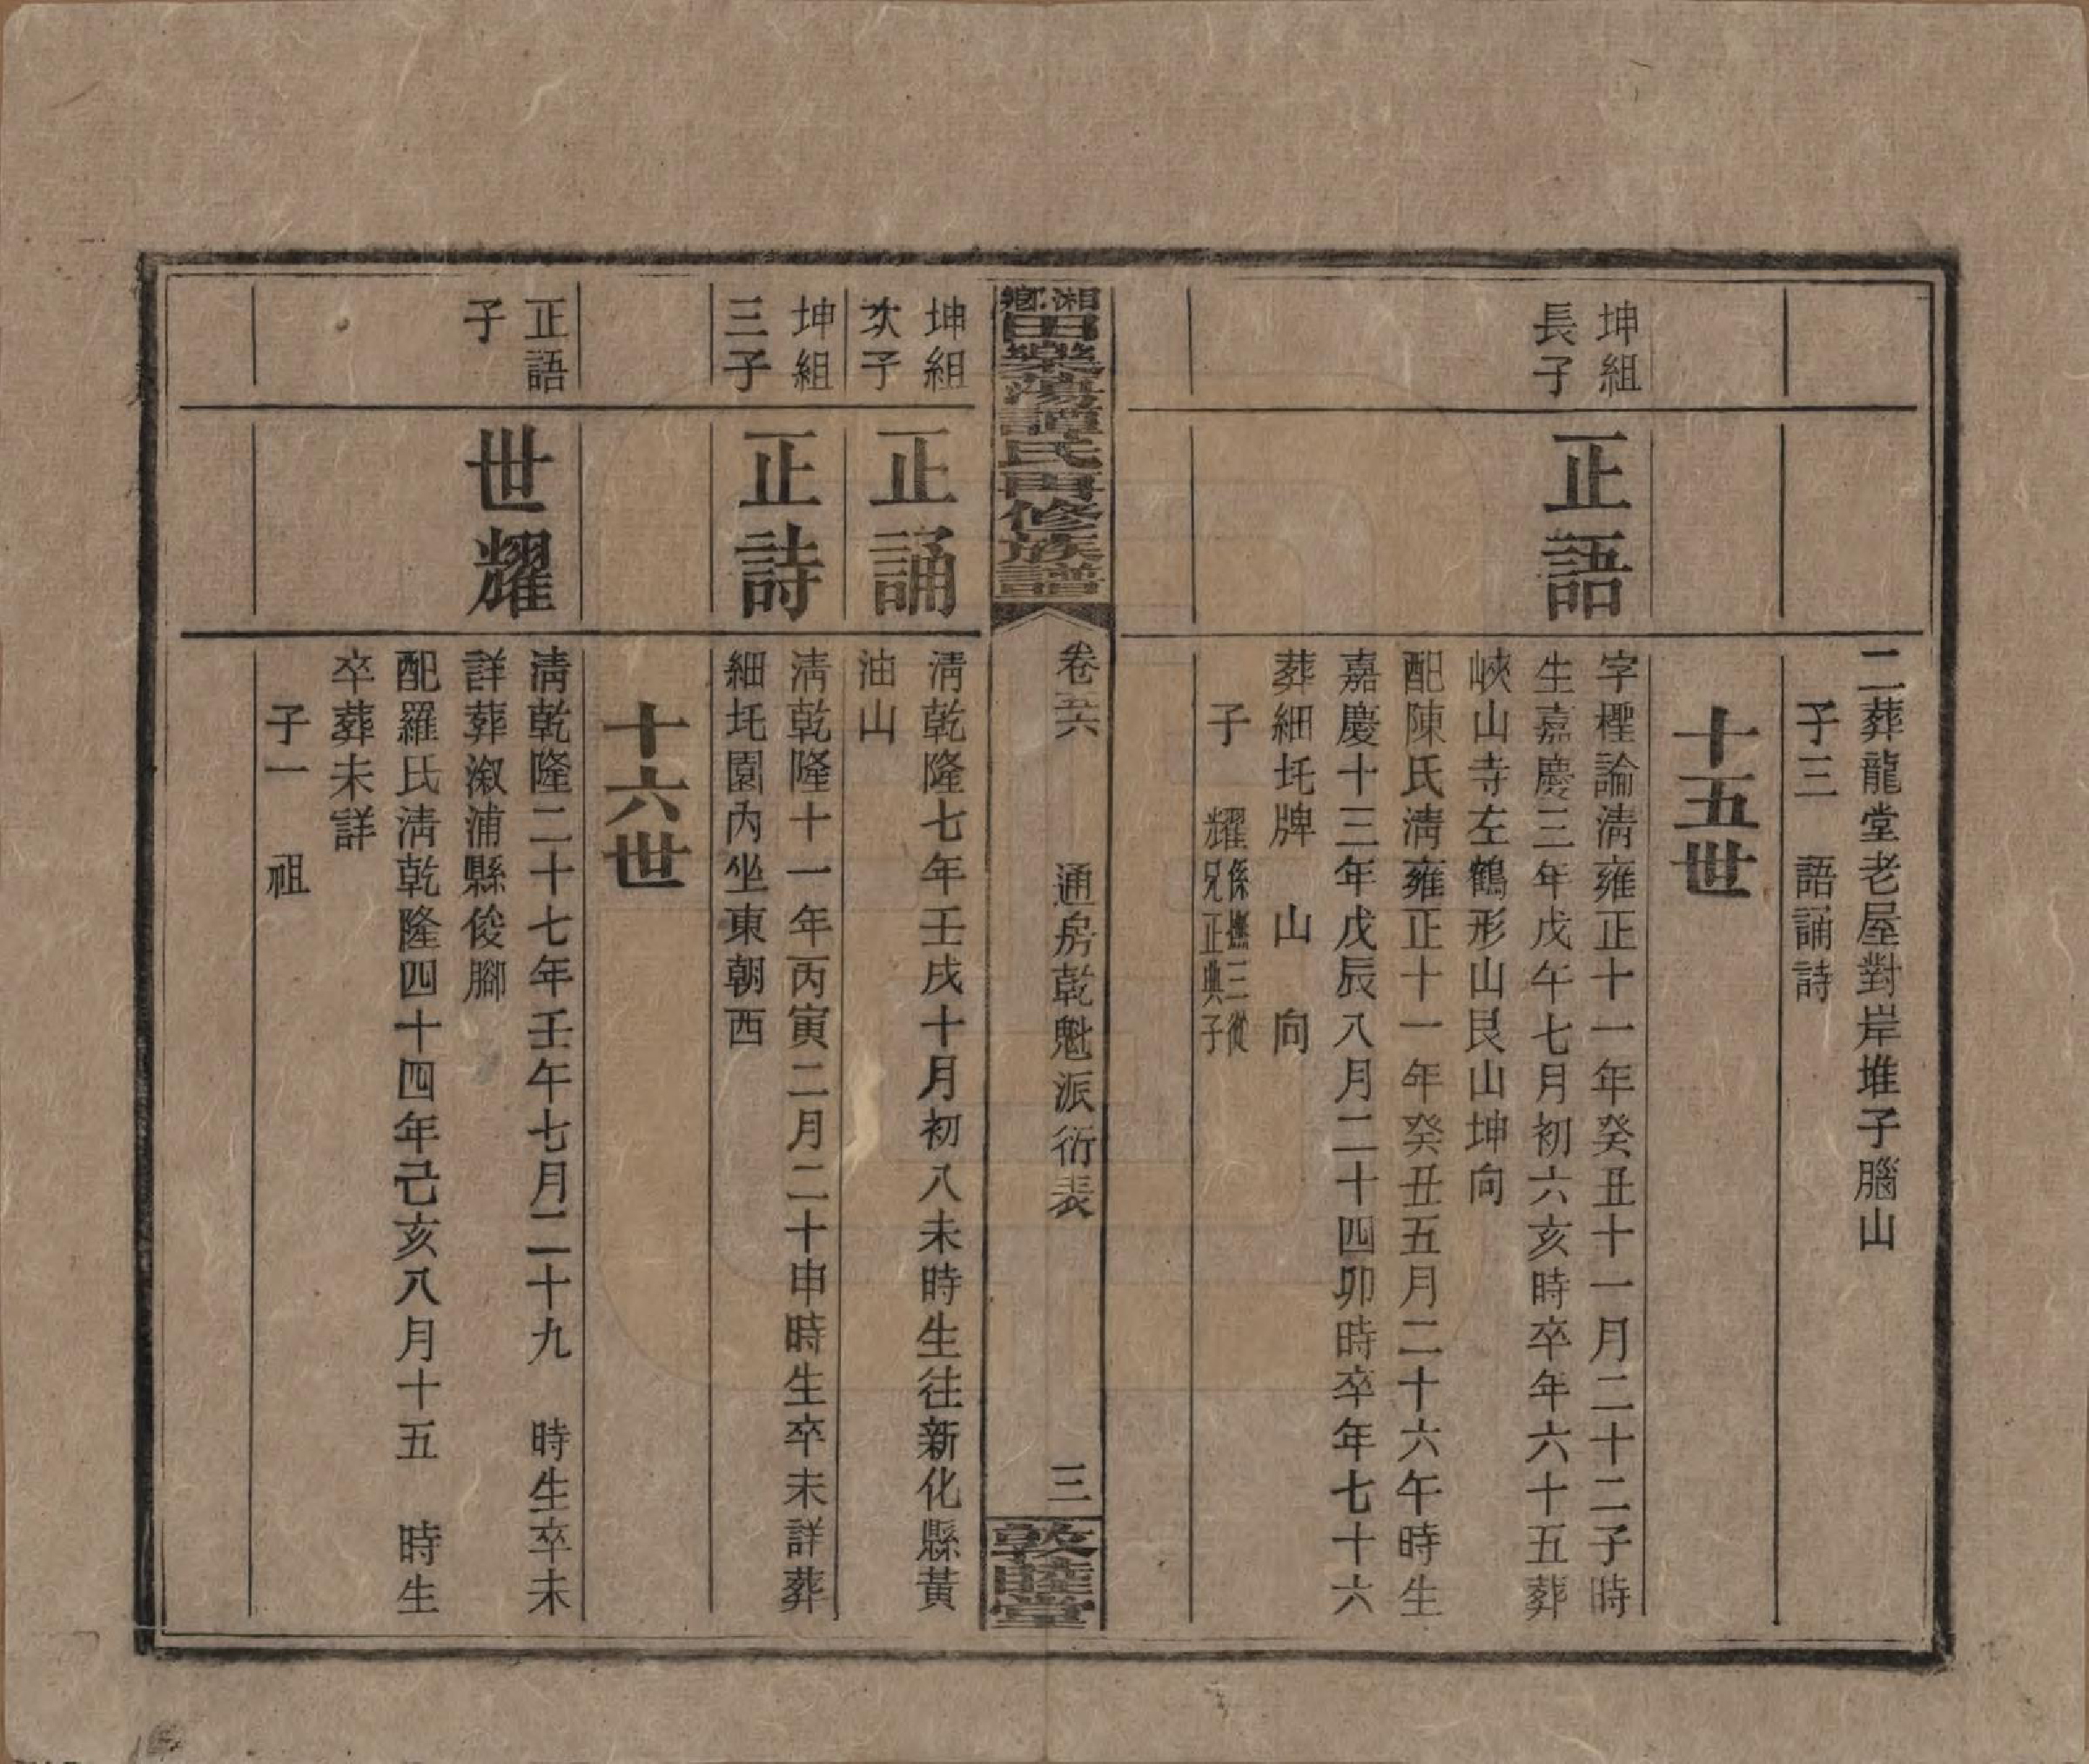 二葬龍堂老屋對岸堆子腦山
子三　語誦詩
十五世
坤組
長子
正語
字檉論清雍正十一年癸丑十一月二十二子時
生嘉慶三年戊午七月初六亥時卒年六十五葬
峽山寺左鶴形山艮山坤向
配陳氏清雍正十一年癸丑五月二十六午時生
嘉慶十三年戊辰八月二十四卯時卒年七十六
葬細圫牌　山　向
子　耀
係撫三從
兄正典子
湘鄉田樂蕩譚氏再修族譜
卷五六　通房乾魁派衍表　三
敦睦堂
坤組
次子
正誦
清乾隆七年壬戌十月初八未時生往新化縣黃
油山
坤組
三子
正詩
清乾隆十一年丙寅二月二十申時生卒未詳葬
細圫園內坐東朝西
十六世
正語
子
世耀
清乾隆二十七年壬午七月二十九　時生卒未
詳葬溆浦縣俊腳
配羅氏清乾隆四十四年己亥八月十五　時生
卒葬未詳
子一　祖